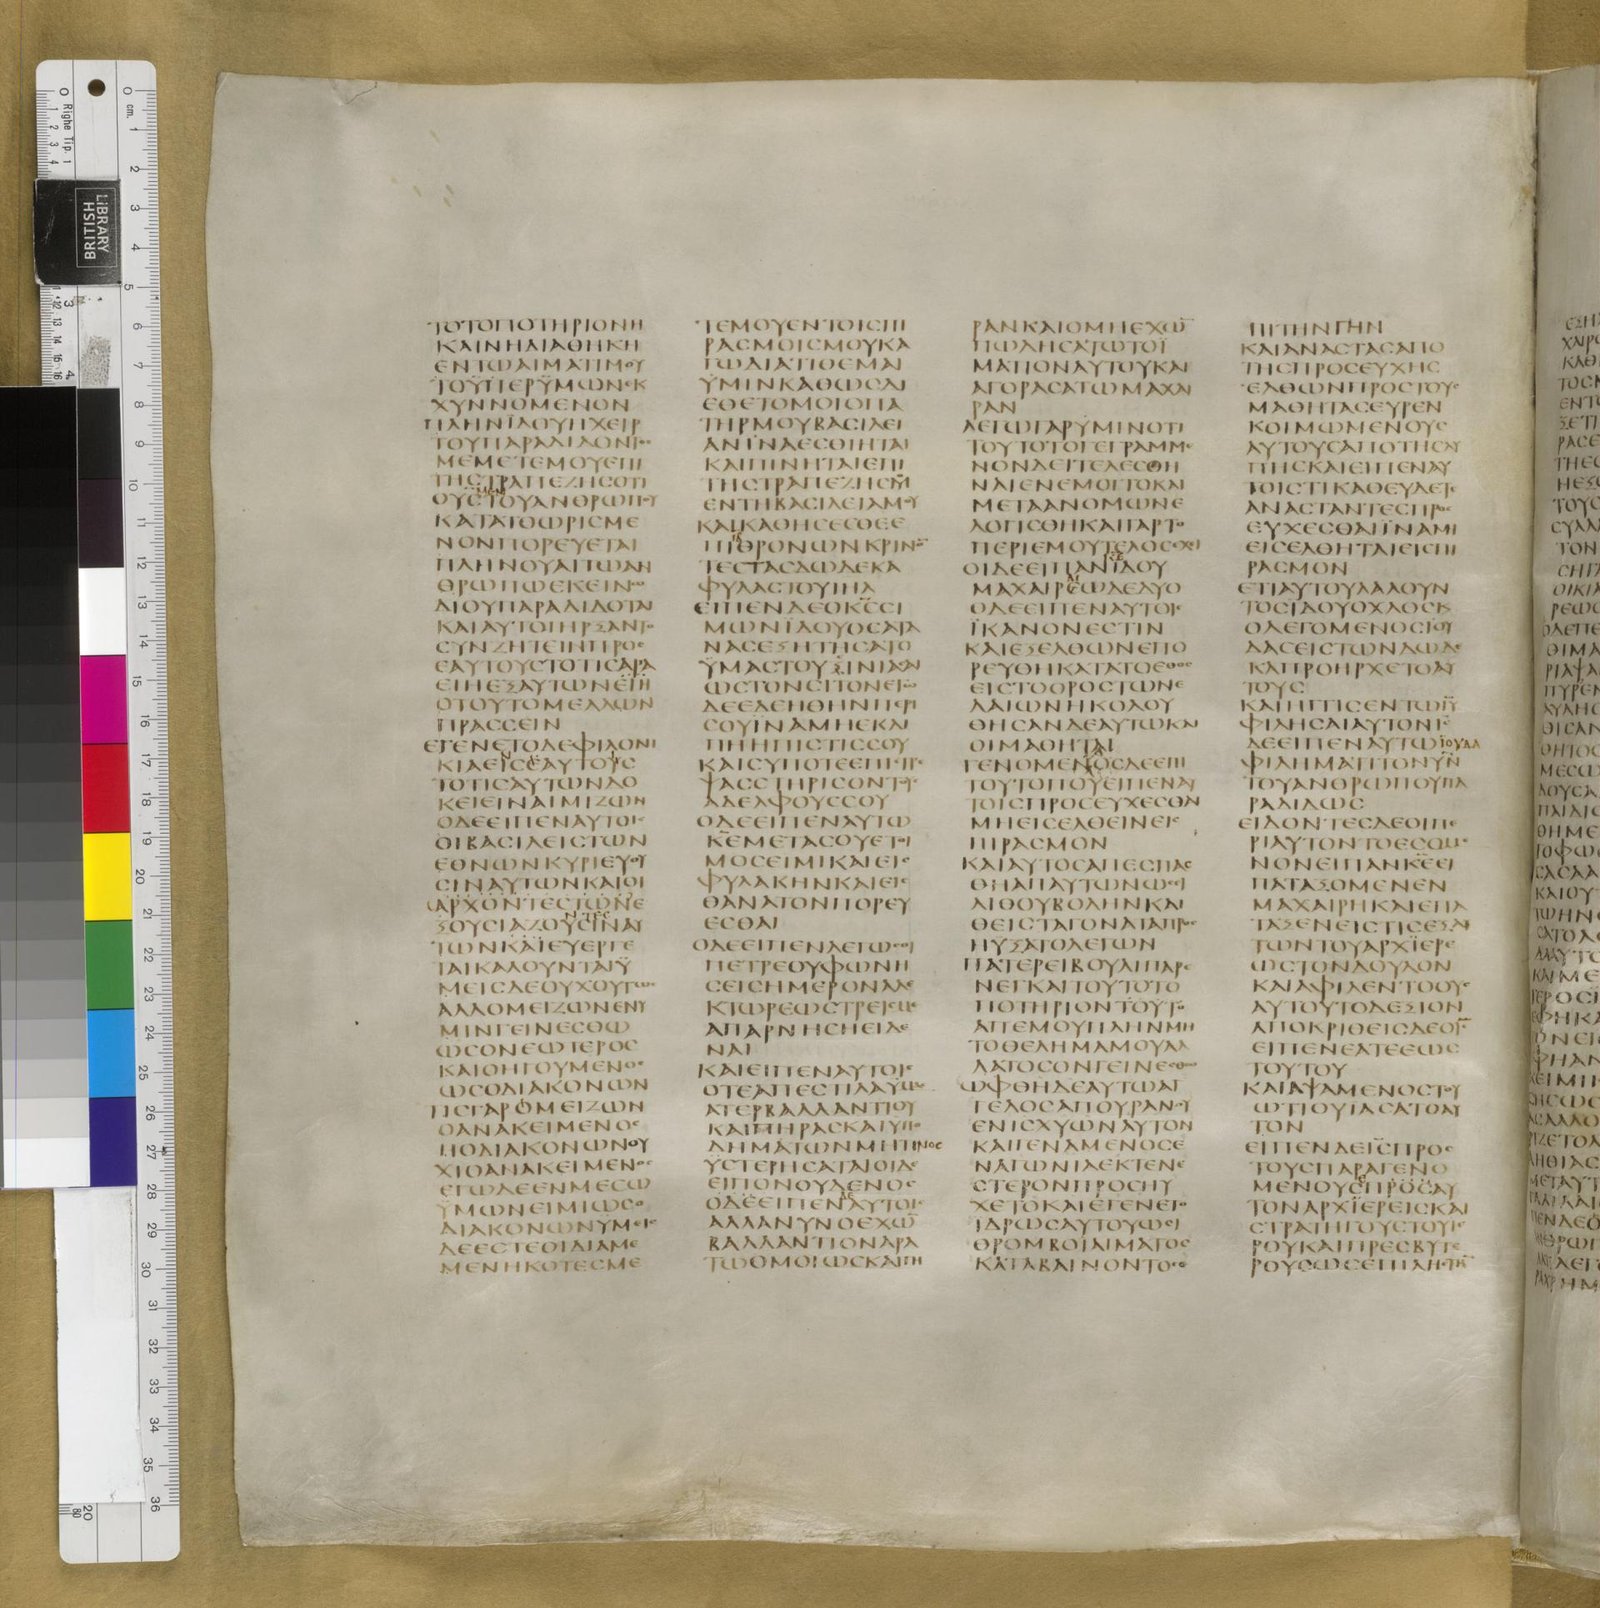 ΤΟΤΟΠΟΤΗΡΙΟΝΗ
ΚΑΙΝΗΔΙΑΘΗΚΗ
ΕΝΤΩΑΙΜΑΤΙΜΟΥ
ΤΟΥΠΕΡΫΜΩΝΕΚ
ΧΥΝΝΟΜΕΝΟΝ
ΠΛΗΝΪΔΟΥΗΧΕΙΡ
ΤΟΥΠΑΡΑΔΙΔΟΝΤΟϹ
ΜΕΜΕΤΕΜΟΥΕΠΙ
ΤΗϹΤΡΑΠΕΖΗϹΟΤΙ
ΟΥϹΤΟΥΑΝΘΡΩΠΟΥ
ΚΑΤΑΤΟΩΡΙϹΜΕ
ΝΟΝΠΟΡΕΥΕΤΑΙ
ΠΛΗΝΟΥΑΙΤΩΑΝ
ΘΡΩΠΩΕΚΕΙΝΩ
ΔΙΟΥΠΑΡΑΔΙΔΟΤΑΙ
ΚΑΙΑΥΤΟΙΗΡΞΑΝΤΟ
ϹΥΝΖΗΤΕΙΝΠΡΟϹ
ΕΑΥΤΟΥϹΤΟΤΙϹΑΡΑ
ΕΙΗΕΞΑΥΤΩΝ
ΟΤΟΥΤΟΜΕΛΛΩΝ
ΠΡΑϹϹΕΙΝ
ΕΓΕΝΕΤΟΔΕΦΙΛΟΝΙ
ΚΙΑΕΙϹΕΑΥΤΟΥϹ
ΤΟΤΙϹΑΥΤΩΝΔΟ
ΚΕΙΕΙΝΑΙΜΙΖΩΝ
ΟΔΕΕΙΠΕΝΑΥΤΟΙϹ
ΟΙΒΑϹΙΛΕΙϹΤΩΝ
ΕΘΝΩΝΚΥΡΙΕΥΟΥ
ϹΙΝΑΥΤΩΝΚΑΙΟΙ
ΑΡΧΟΝΤΕϹΤΩΝΕ
ΞΟΥϹΙΑΖΟΥϹΙΝΑΥ
ΤΩΝΚΑΙΕΥΕΡΓΕ
ΤΑΙΚΑΛΟΥΝΤΑΙΫ
ΜΕΙϹΔΕΟΥΧΟΥΤΩϹ
ΑΛΛΟΜΕΙΖΩΝΕΝΫ
ΜΙΝΓΕΙΝΕϹΘΩ
ΩϹΟΝΕΩΤΕΡΟϹ
ΚΑΙΟΗΓΟΥΜΕΝΟϹ
ΩϹΟΔΙΑΚΟΝΩΝ
ΤΙϹΓΑΡΟΜΕΙΖΩΝ
ΟΑΝΑΚΕΙΜΕΝΟϹ
ΗΟΔΙΑΚΟΝΩΝΟΥ
ΧΙΟΑΝΑΚΕΙΜΕΝΟϹ
ΕΓΩΔΕΕΝΜΕϹΩ
ΥΜΩΝΕΙΜΙΩϹΟ
ΔΙΑΚΟΝΩΝΥΜΕΙϹ
ΔΕΕϹΤΕΟΙΔΙΑΜΕ
ΜΕΝΗΚΟΤΕϹΜΕ
ΤΕΜΟΥΕΝΤΟΙϹΠΙ
ΡΑϹΜΟΙϹΜΟΥΚΑ
ΓΩΔΙΑΤΙΘΕΜΑΙ
ΫΜΙΝΚΑΘΩϹΔΙ
ΕΘΕΤΟΜΟΙΟΠΑ
ΤΗΡΜΟΥΒΑϹΙΛΕΙ
ΑΝΪΝΑΕϹΘΙΗΤΑΙ
ΚΑΙΠΙΝΗΤΑΙΕΠΙ
ΤΗϹΤΡΑΠΕΖΗϹΜΟΥ
ΕΝΤΗΒΑϹΙΛΕΙΑΜΟΥ
ΚΑΙΚΑΘΗϹΕϹΘΕΕ
ΠΙΘΡΟΝΩΝΚΡΙΝΟ̅
ΤΕϹΤΑϹΔΩΔΕΚΑ
ΦΥΛΑϹΤΟΥΙΗΛ
ΕΙΠΕΝΔΕΟΚ̅Ϲ̅ϹΙ
ΜΩΝΪΔΟΥΟϹΑΤΑ
ΝΑϹΕΞΗΤΗϹΑΤΟ
ΫΜΑϹΤΟΥϹΙΝΙΑϹΑΙ
ΩϹΤΟΝϹΙΤΟΝΕΓΩ
ΔΕΕΔΕΗΘΗΝΠΕΡΙ
ϹΟΥΪΝΑΜΗΕΚΛΙ
ΠΗΗΠΙϹΤΙϹϹΟΥ
ΚΑΙϹΥΠΟΤΕΕΠΙϹΤΡΕ
ΨΑϹϹΤΗΡΙϹΟΝΤΟΥϹ
ΑΔΕΛΦΟΥϹϹΟΥ
ΟΔΕΕΙΠΕΝΑΥΤΩ
Κ̅Ε̅ΜΕΤΑϹΟΥΕΤΟΙ
ΜΟϹΕΙΜΙΚΑΙΕΙϹ
ΦΥΛΑΚΗΝΚΑΙΕΙϹ
ΘΑΝΑΤΟΝΠΟΡΕΥ
ΕϹΘΑΙ
ΟΔΕΕΙΠΕΝΛΕΓΩϹΟΙ
ΠΕΤΡΕΟΥΦΩΝΗ
ϹΕΙϹΗΜΕΡΟΝΑΛΕ
ΚΤΩΡΕΩϹΤΡΕΙϹΜΕ
ΑΠΑΡΝΗϹΗΕΙΔΕ
ΝΑΙ
ΚΑΙΕΙΠΕΝΑΥΤΟΙϹ
ΟΤΕΑΠΕϹΤΙΛΑΥΜΑϹ
ΑΤΕΡΒΑΛΛΑΝΤΙΟΥ
ΚΑΙΠΗΡΑϹΚΑΙΥΠΟ
ΔΗΜΑΤΩΝΜΗΤΙΝΟϹ
ΥϹΤΕΡΗϹΑΤΑΙΟΙΔΕ
ΕΙΠΟΝΟΥΔΕΝΟϹ
ΟΔΕΕΙΠΕΝΑΥΤΟΙϹ
ΑΛΛΑΝΥΝΟΕΧΩ̅
ΒΑΛΛΑΝΤΙΟΝΑΡΑ
ΤΩΟΜΟΙΩϹΚΑΙΠΗ
ΡΑΝΚΑΙΟΜΗΕΧΩ̅
ΠΩΛΗϹΑΤΩΤΟΪ
ΜΑΤΙΟΝΑΥΤΟΥΚΑΙ
ΑΓΟΡΑϹΑΤΩΜΑΧΑΙ
ΡΑΝ
ΛΕΓΩΓΑΡΥΜΙΝΟΤΙ
ΤΟΥΤΟΤΟΓΕΓΡΑΜΜΕ
ΝΟΝΔΕΙΤΕΛΕϹΘΗ
ΝΑΙΕΝΕΜΟΙΤΟΚΑΙ
ΜΕΤΑΑΝΟΜΩΝΕ
ΛΟΓΙϹΘΗΚΑΙΓΑΡΤΟ
ΠΕΡΙΕΜΟΥΤΕΛΟϹΕΧΕΙ
ΟΙΔΕΕΙΠΑΝΪΔΟΥ
ΜΑΧΑΙΡΕΩΔΕΔΥΟ
ΟΔΕΕΙΠΕΝΑΥΤΟΙϹ
ΪΚΑΝΟΝΕϹΤΙΝ
ΚΑΙΕΞΕΛΘΩΝΕΠΟ
ΡΕΥΘΗΚΑΤΑΤΟΕΘΟϹ
ΕΙϹΤΟΟΡΟϹΤΩΝΕ
ΛΑΙΩΝΗΚΟΛΟΥ
ΘΗϹΑΝΔΕΑΥΤΩΚΑΙ
ΟΙΜΑΘΗΤΑΙ
ΓΕΝΟΜΕΝΟϹΔΕΕΠΙ
ΤΟΥΤΟΠΟΥΕΙΠΕΝΑΥ
ΤΟΙϹΠΡΟϹΕΥΧΕϹΘΑΙ
ΜΗΕΙϹΕΛΘΕΙΝΕΙϹ
ΠΙΡΑϹΜΟΝ
ΚΑΙΑΥΤΟϹΑΠΕϹΠΑϹ
ΘΗΑΠΑΥΤΩΝΩϹΕΙ
ΛΙΘΟΥΒΟΛΗΝΚΑΙ
ΘΕΙϹΤΑΓΟΝΑΤΑΠΡΟϹ
ΗΥΞΑΤΟΛΕΓΩΝ
ΠΑΤΕΡΕΙΒΟΥΛΙΠΑΡΕ
ΝΕΓΚΑΙΤΟΥΤΟΤΟ
ΠΟΤΗΡΙΟΝΤΟΥΤΟ
ΑΠΕΜΟΥΠΛΗΝΜΗ
ΤΟΘΕΛΗΜΑΜΟΥΑΛ
ΛΑΤΟϹΟΝΓΕΙΝΕϹΘΩ
ΩΦΘΗΔΕΑΥΤΩΑΓ
ΓΕΛΟϹΑΠΟΥΡΑΝΟΥ
ΕΝΙϹΧΥΩΝΑΥΤΟΝ
ΚΑΙΓΕΝΑΜΕΝΟϹΕ
ΝΑΓΩΝΙΑΕΚΤΕΝΕ
ϹΤΕΡΟΝΠΡΟϹΗΥ
ΧΕΤΟΚΑΙΕΓΕΝΕΤΟ
ΪΔΡΩϹΑΥΤΟΥΩϹΕΙ
ΘΡΟΜΒΟΙΑΙΜΑΤΟϹ
ΚΑΤΑΒΑΙΝΟΝΤΟϹ
ΠΙΤΗΝΓΗΝ
ΚΑΙΑΝΑϹΤΑϹΑΠΟ
ΤΗϹΠΡΟϹΕΥΧΗϹ
ΕΛΘΩΝΠΡΟϹΤΟΥϹ
ΜΑΘΗΤΑϹΕΥΡΕΝ
ΚΟΙΜΩΜΕΝΟΥϹ
ΑΥΤΟΥϹΑΠΟΤΗϹΛΥ
ΠΗϹΚΑΙΕΙΠΕΝΑΥ
ΤΟΙϹΤΙΚΑΘΕΥΔΕΤΕ
ΑΝΑϹΤΑΝΤΕϹΠΡΟϹ
ΕΥΧΕϹΘΑΙΪΝΑΜΙ
ΕΙϹΕΛΘΗΤΑΙΕΙϹΠΙ
ΡΑϹΜΟΝ
ΕΤΙΑΥΤΟΥΛΑΛΟΥΝ
ΤΟϹΪΔΟΥΟΧΛΟϹΚ
ΟΛΕΓΟΜΕΝΟϹΙΟΥ
ΔΑϹΕΙϹΤΩΝΔΩΔΕ
ΚΑΠΡΟΗΡΧΕΤΟΑΥ
ΤΟΥϹ
ΚΑΙΗΓΓΙϹΕΝΤΩΙ̅Υ̅
ΦΙΛΗϹΑΙΑΥΤΟΝΙ̅Ϲ̅
ΔΕΕΙΠΕΝΑΥΤΩΪΟΥΔΑ
ΦΙΛΗΜΑΤΙΤΟΝΥ̅Ν̅
ΤΟΥΑΝΘΡΩΠΟΥΠΑ
ΡΑΔΙΔΩϹ
ΕΙΔΟΝΤΕϹΔΕΟΙΠΕ
ΡΙΑΥΤΟΝΤΟΕϹΟΜΕ
ΝΟΝΕΙΠΑΝΚ̅Ε̅ΕΙ
ΠΑΤΑΞΟΜΕΝΕΝ
ΜΑΧΑΙΡΗΚΑΙΕΠΑ
ΤΑΞΕΝΕΙϹΤΙϹΕΞΑΥ
ΤΩΝΤΟΥΑΡΧΙΕΡΕ
ΩϹΤΟΝΔΟΥΛΟΝ
ΚΑΙΑΦΙΛΕΝΤΟΟΥϹ
ΑΥΤΟΥΤΟΔΕΞΙΟΝ
ΑΠΟΚΡΙΘΕΙϹΔΕΟΙ̅Ϲ̅
ΕΙΠΕΝΕΑΤΕΕΩϹ
ΤΟΥΤΟΥ
ΚΑΙΑΨΑΜΕΝΟϹΤΟΥ
ΩΤΙΟΥΪΑϹΑΤΟΑΥ
ΤΟΝ
ΕΙΠΕΝΔΕΙ̅Ϲ̅ΠΡΟϹ
ΤΟΥϹΠΑΡΑΓΕΝΟ
ΜΕΝΟΥϹΠΡΟϹΑΥ
ΤΟΝΑΡΧΙΕΡΕΙϹΚΑΙ
ϹΤΡΑΤΗΓΟΥϹΤΟΥΙΕ
ΡΟΥΚΑΙΠΡΕϹΒΥΤΕ
ΡΟΥϹΩϹΕΠΙΛΗϹΤΗ̅
LIBRARY
BRITISH